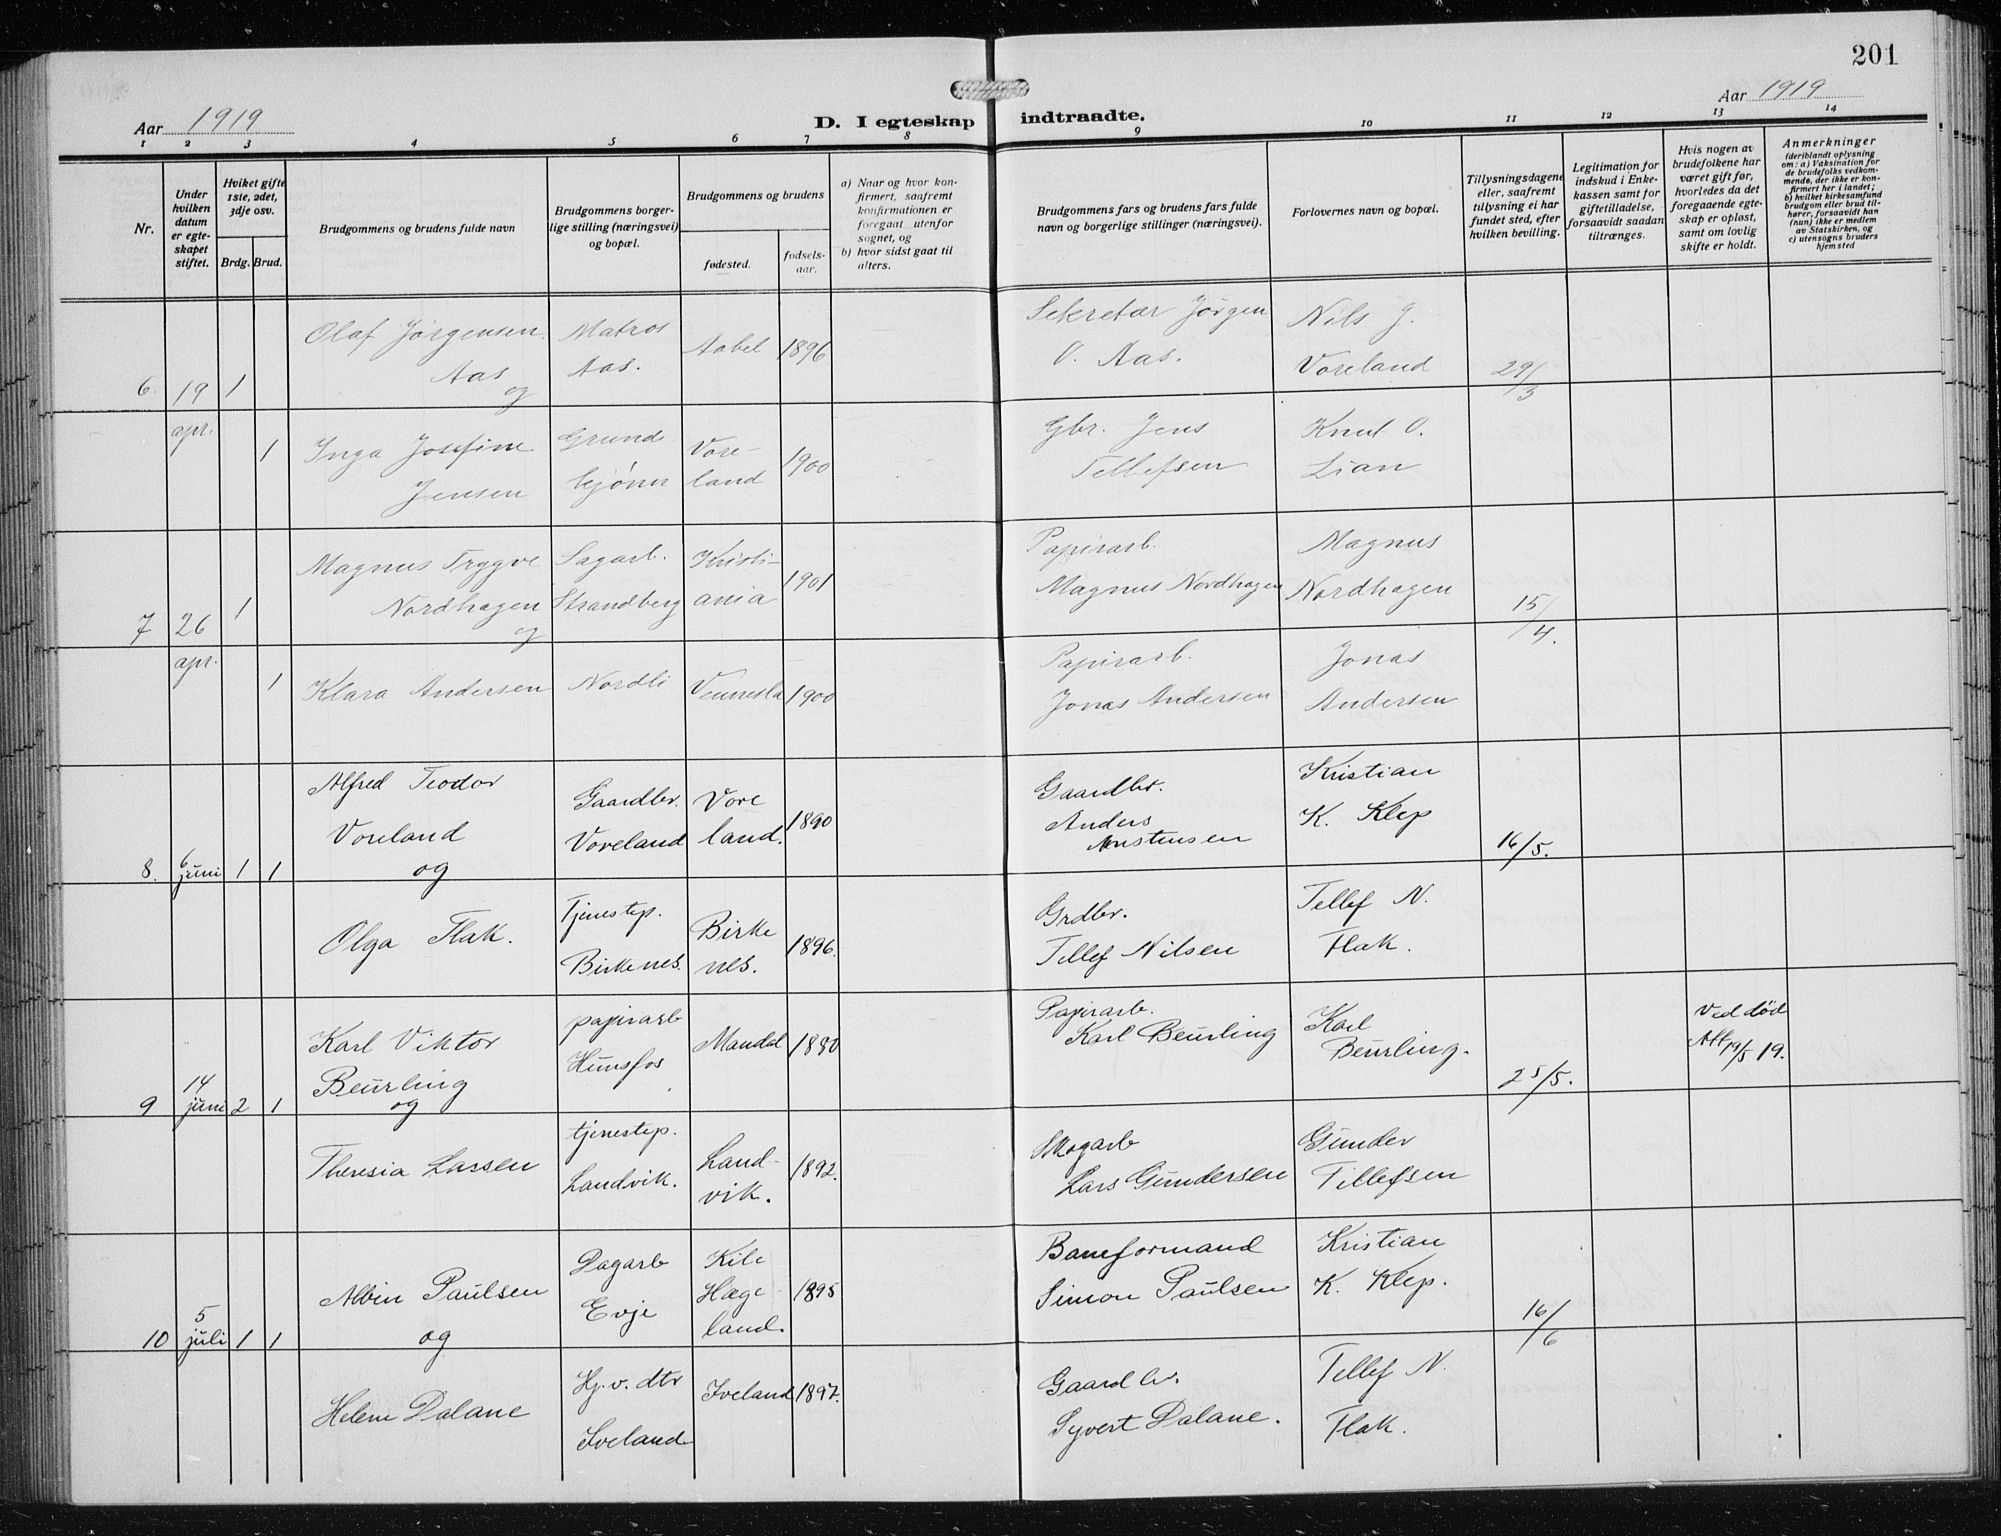 201
Aar 1919
D. I egteskap indtraadte.
Aar 1919
1 2 3 4 5 6 7 8 9 10 11 12 13 14
Nr.
Under hvilken datum er egteskapet stiftet.
Hviket gifte 1ste, 2det, 3dje osv.
Brdg. Brud.
Brudgommens og brudens fulde navn
Brudgommens borgerlige stilling (næringsvei) og bopæl.
Brudgommens og brudens
fødested.
fødselsaar.
a) Naar og hvor konfirmert, saafremt konfirmationen er foregaat utenfor sognet, og
b) hvor sidst gaat til alters.
Brudgommens fars og brudens fars fulde navn og borgerlige stillinger (næringsvei).
Forlovernes navn og bopæl.
Tillysningsdagene eller, saafremt tillysning ei har fundet sted, efter hvilken bevilling.
Legitimation for indskud i Enkekassen samt for giftetilladelse, forsaavidt saadan tiltrænges.
Hvis nogen av brudefolkene har været gift før, hvorledes da det foregaaende egteskap er opløst, samt om lovlig skifte er holdt.
Anmerkninger
(deriblandt oplysning om: a) Vaksination for de brudefolks vedkommende, der ikke er konfirmert her i landet; b) hvilket kirkesamfund brudgom eller brud tilhører, forsaavidt han (hun) ikke er medlem av Statskirken, og c) utensogns bruders hjemsted
6. 19 apr. 1
Olaf Jørgensen Aas og
Matros Aas.
Aabel 1896
Sekretær Jørgen O. Aas.
Nils J. Voreland
29/3
1
Inga Josefine Jensen
Grundetjønn
Voreland 1900
Gbr. Jens Tellefsen
Knut O. Lian
7 26 apr. 1
Magnus Trygve Nordhagen og
Sagarb. Strandberg
Kristiania 1901
Papirarb. Magnus Nordhagen
Magnus Nordhagen
15/4.
1
Klara Andersen
Nordli
Vennesla 1900
Papirarb. Jonas Andersen
Jonas Andersen
8. 6 juni 1 1
Alfred Teodor Voreland og
Gaardbr. Voreland
Voreland. 1890
Gaardbr. Anders Anstensen
Kristian K. Klep
16/5.
Olga Flak.
Tjenestep. Birkenes.
Birkenes. 1896.
Grdbr. Tellef Nilsen
Tellef N. Flak.
9 14 juni 2 1
Karl Viktor Beurling og
papirarb Hunsfos
Mandal 1880
Papirarb. Karl Beurling
Karl Beurling.
25/5.
Ved død Att 19/5 19.
Theresia Larsen
tjenestep. Landvik.
Landvik. 1892.
Skogarb Lars Gundersen
Gunder Tellefsen
10 5 juli 1 1
Albin Paulsen og
Dagarb Evje
Kile Hægeland. 1895
Baneformand Simon Paulsen
Kristian K. Klep.
16/6
Helene Dalane
Hj.v. dtr Iveland
Iveland 1897.
Gaardbr. Syvert Dalane.
Tellef N. Flak.